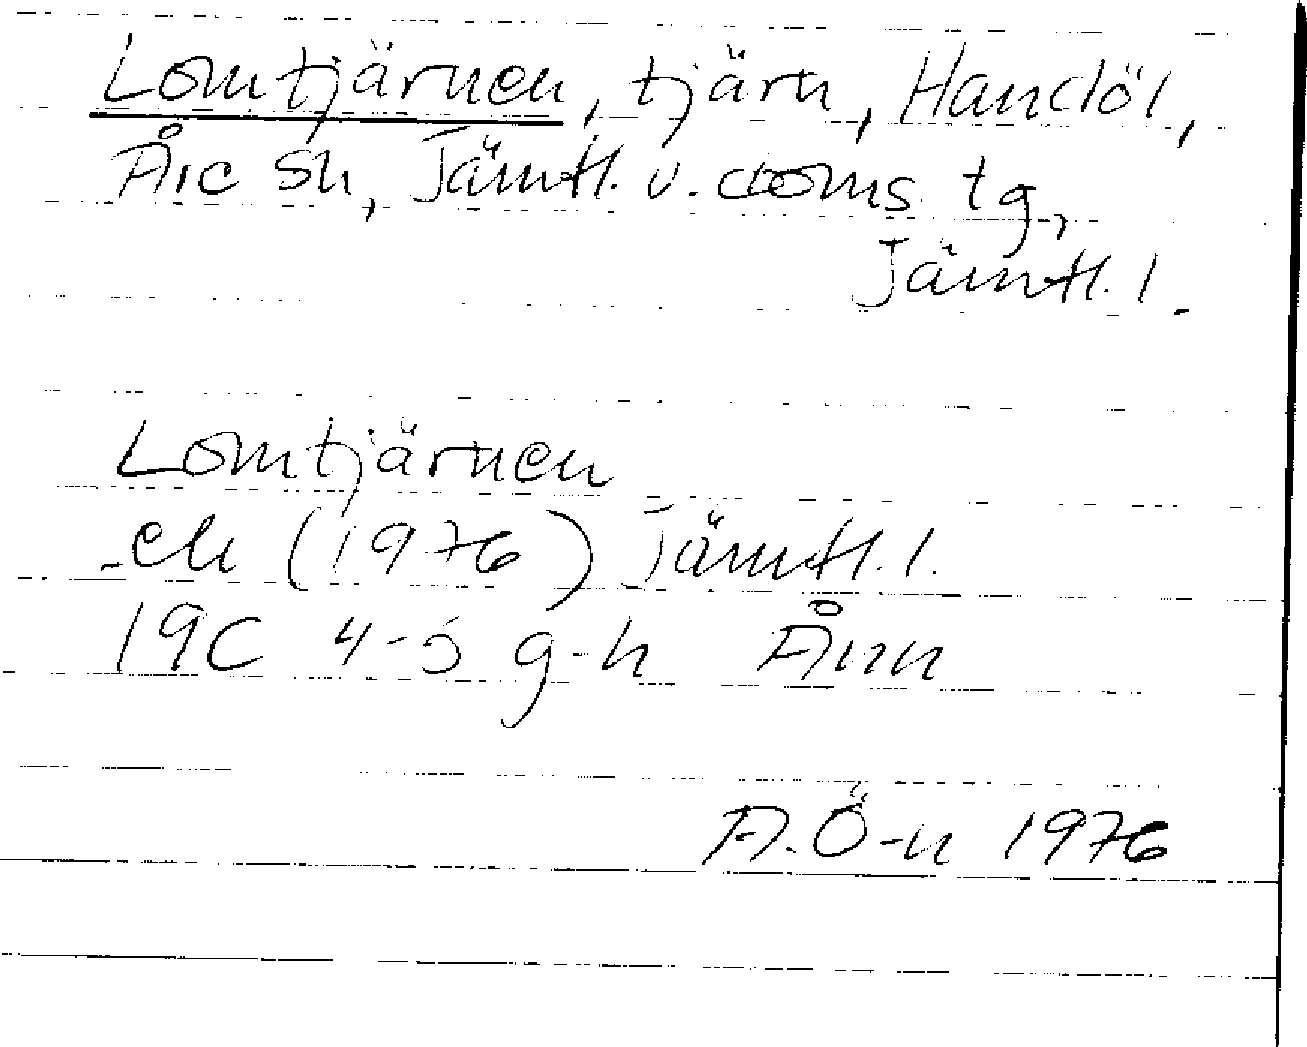 Lomtjärnen, tjärn, Handöl,
Åre sn, Jämtl. v. doms. tg,
Jämtl. l.
Lomtjärnen
ek (1976) Jämtl. l.
19C 4-5 g-h Ånn
A. Ö-n 1976